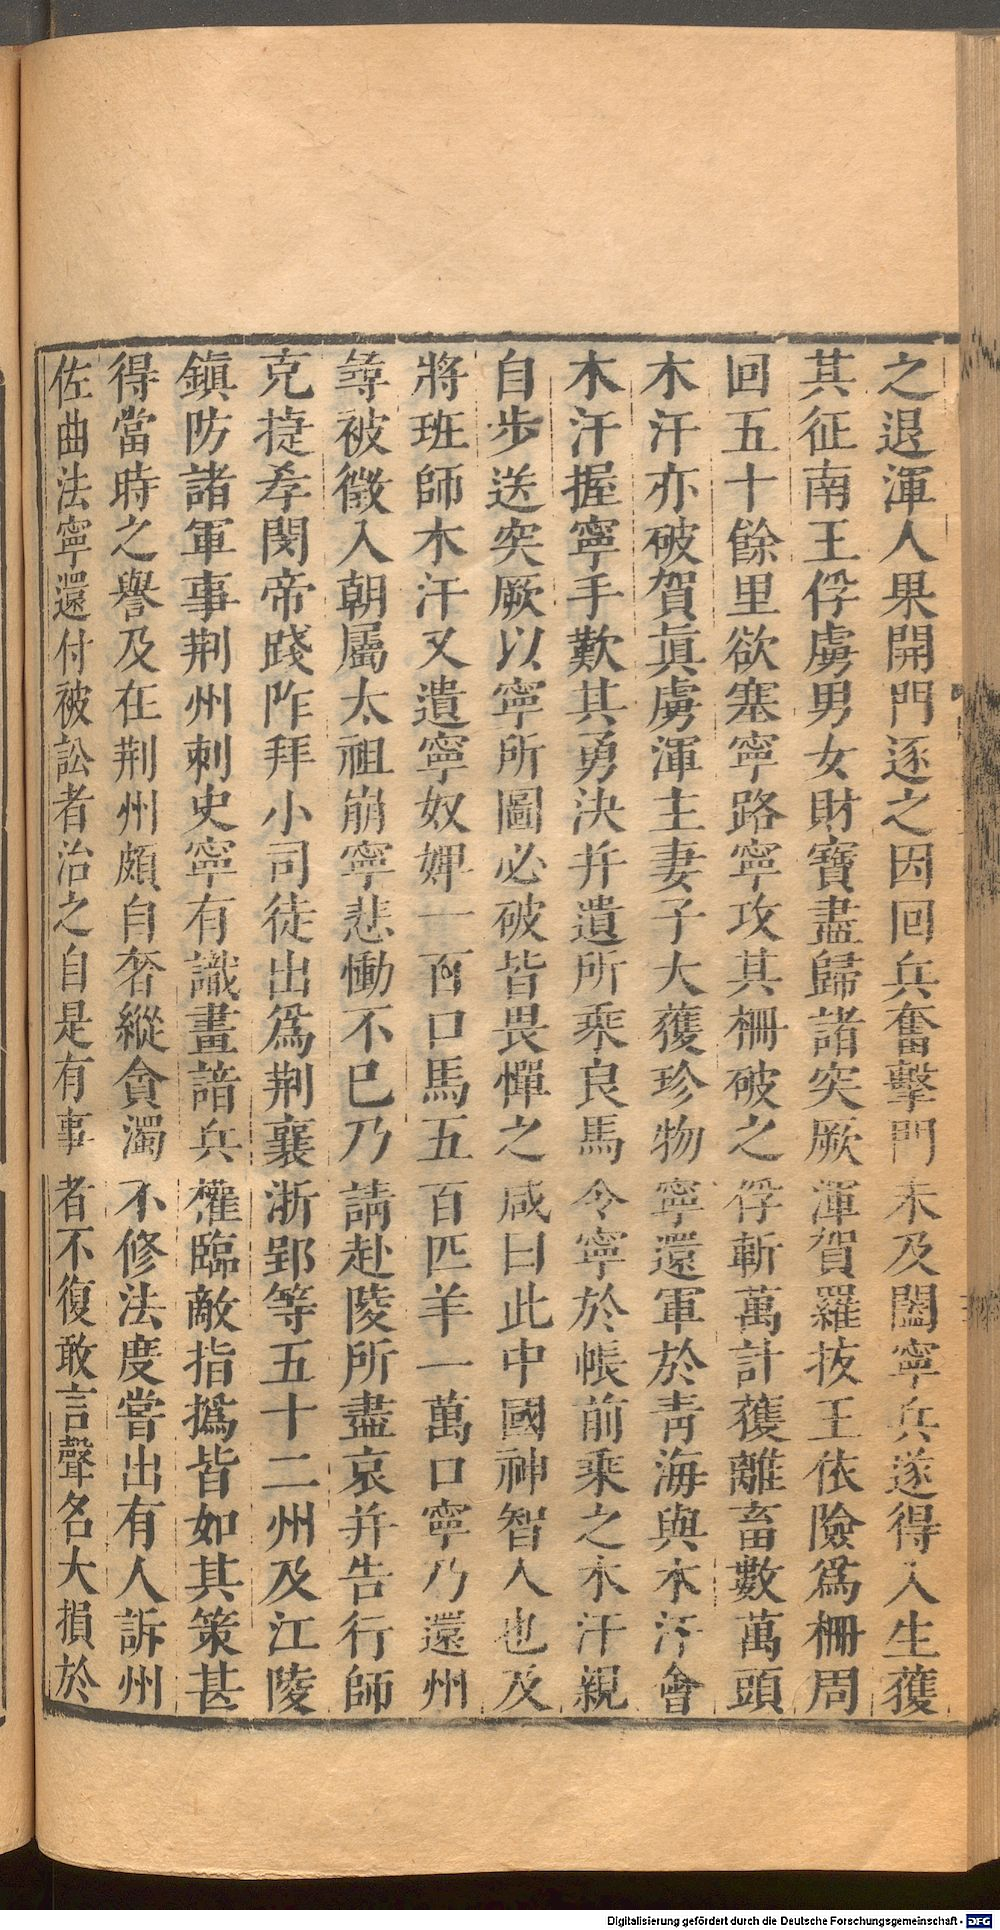 之退渾人果開門逐之因回兵奮擊門未及闔寧兵遂得入生獲
其征南王俘虜男女財寶盡歸諸突厥渾賀羅拔王依險爲柵周
回五十餘里欲塞寧路寧攻其柵破之俘斬萬計獲雜畜數萬頭
木汗亦破賀眞虜渾主妻子大獲珍物寧還軍於青海與木汗會
木汗握寧手歎其勇決并遺所乘良馬令寧於帳前乘之木汗親
自步送突厥以寧所圖必破皆畏憚之咸曰此中國神智人也及
將班師木汗又遺寧奴婢一百口馬五百匹羊一萬口寧乃還州
尋被徵入朝屬太祖崩寧悲慟不已乃請赴陵所盡哀并告行師
克捷孝閔帝踐阼拜小司徒出爲荆襄浙郢等五十二州及江陵
鎭防諸軍事荆州刺史寧有識畫諳兵權臨敵指撝皆如其策甚
得當時之譽及在荆州頗自奢縱貪濁不修法度嘗出有人訴州
佐曲法寧還付被訟者治之自是有事者不復敢言聲名大損於
Digitalisierung gefördert durch die Deutsche Forschungsgemeinschaft - DFG